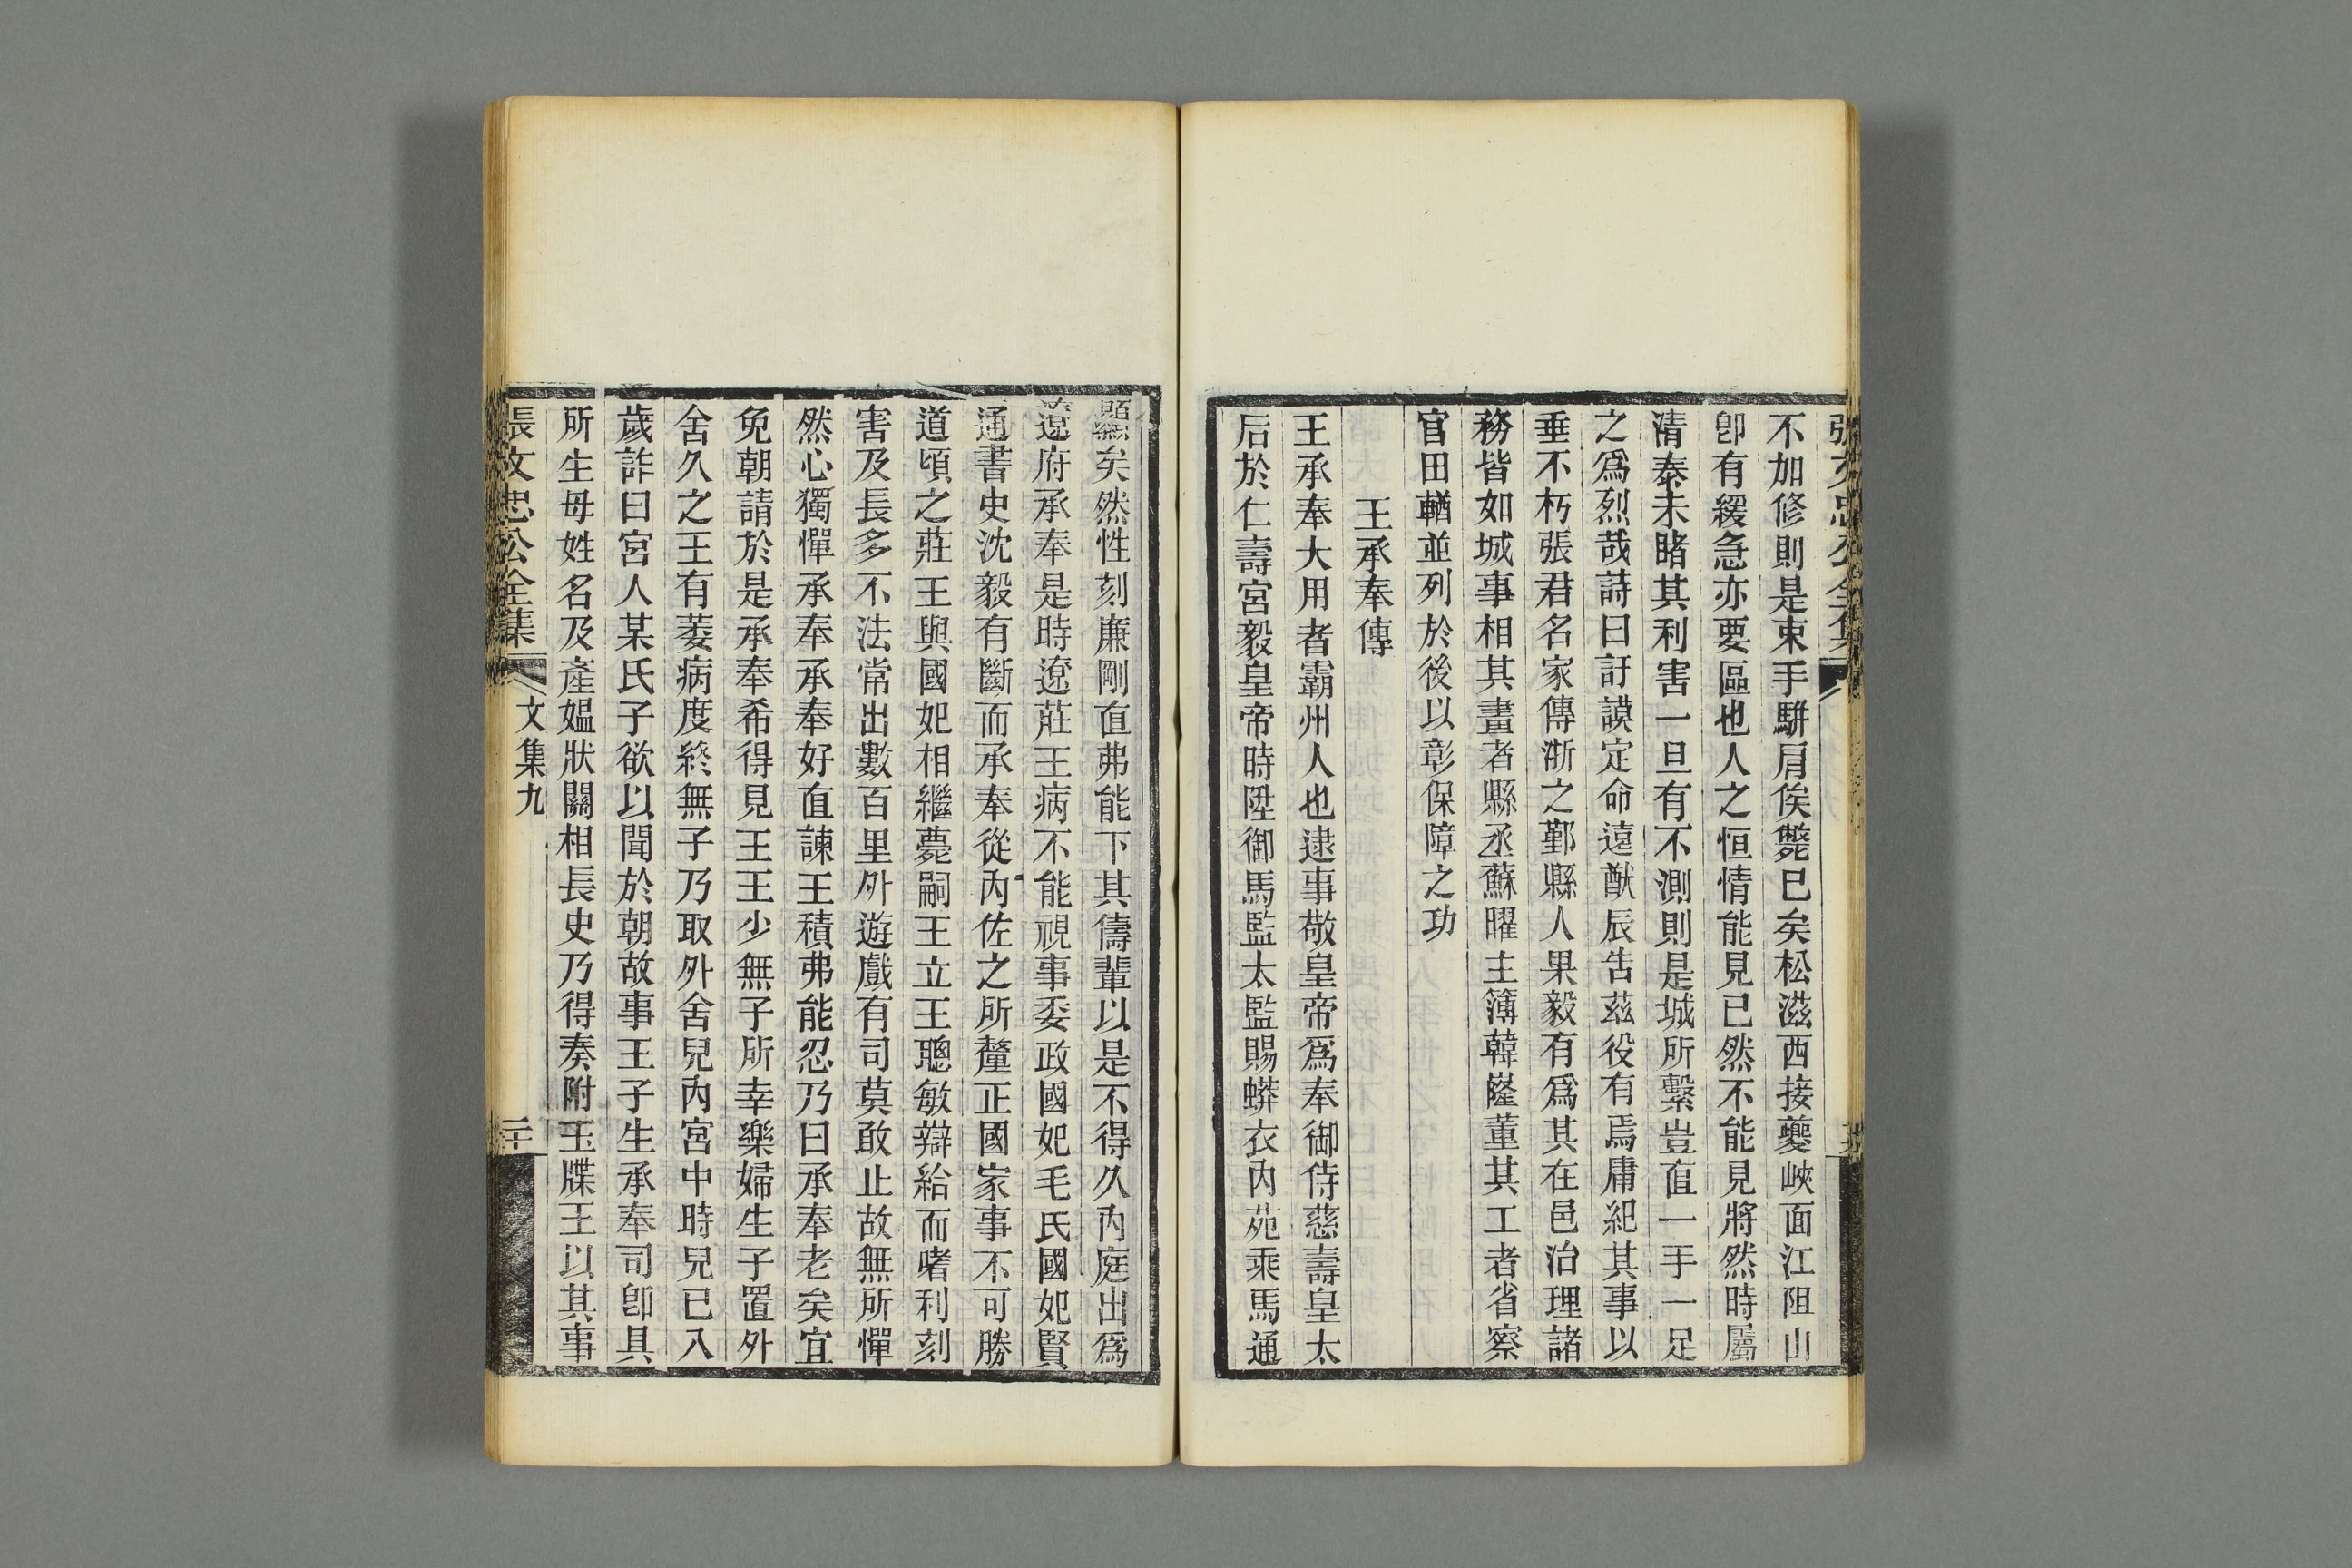 張文忠公全集
不加修則是束手駢肩俟斃已矣松滋西接夔峽面江阻山
卽有緩急亦要區也人之恒情能見已然不能見將然時屬
清泰未睹其利害一旦有不測則是城所繫豈直一手一足
之爲烈哉詩曰訏謨定命遠猷辰告茲役有焉庸紀其事以
垂不朽張君名家傳浙之鄞縣人果毅有爲其在邑治理諸
務皆如城事相其畫者縣丞蘇曜主簿韓嶐董其工者省察
官田輶並列於後以彰保障之功
王承奉傳
王承奉大用者霸州人也逮事敬皇帝爲奉御侍慈壽皇太
后於仁壽宮毅皇帝時陞御馬監太監賜蟒衣內苑乘馬通
顯矣然性刻廉剛直弗能下其儔輩以是不得久內庭出爲
遼府承奉是時遼莊王病不能視事委政國妃毛氏國妃賢
通書史沈毅有斷而承奉從內佐之所釐正國家事不可勝
道頃之莊王與國妃相繼薨嗣王立王聰敏辯給而嗜利刻
害及長多不法常出數百里外遊戲有司莫敢止故無所憚
然心獨憚承奉承奉好直諫王積弗能忍乃曰承奉老矣宜
免朝請於是承奉希得見王王少無子所幸樂婦生子置外
舍久之王有萎病度終無子乃取外舍兒內宮中時兒已入
歲詐曰宮人某氏子欲以聞於朝故事王子生承奉司卽具
所生母姓名及產媼狀關相長史乃得奏附玉牒王以其事
張文忠公全集
文集九
二十